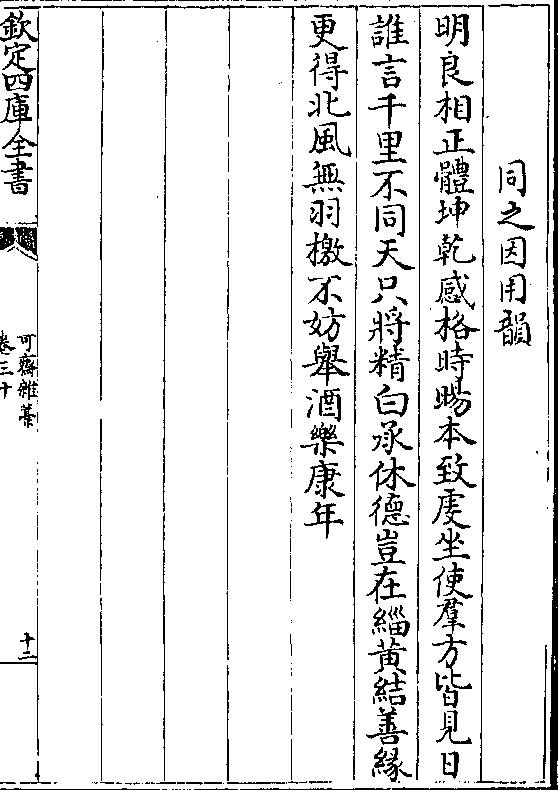 同之因用韻
明良相正體坤乾感格時暘本致虔坐使羣方皆見日
誰言千里不同天只將精白承休德豈在緇黃結善緣
更得北風無羽檄不妨舉酒樂康年
欽定四庫全書
可齋雜藁
卷三十
十二